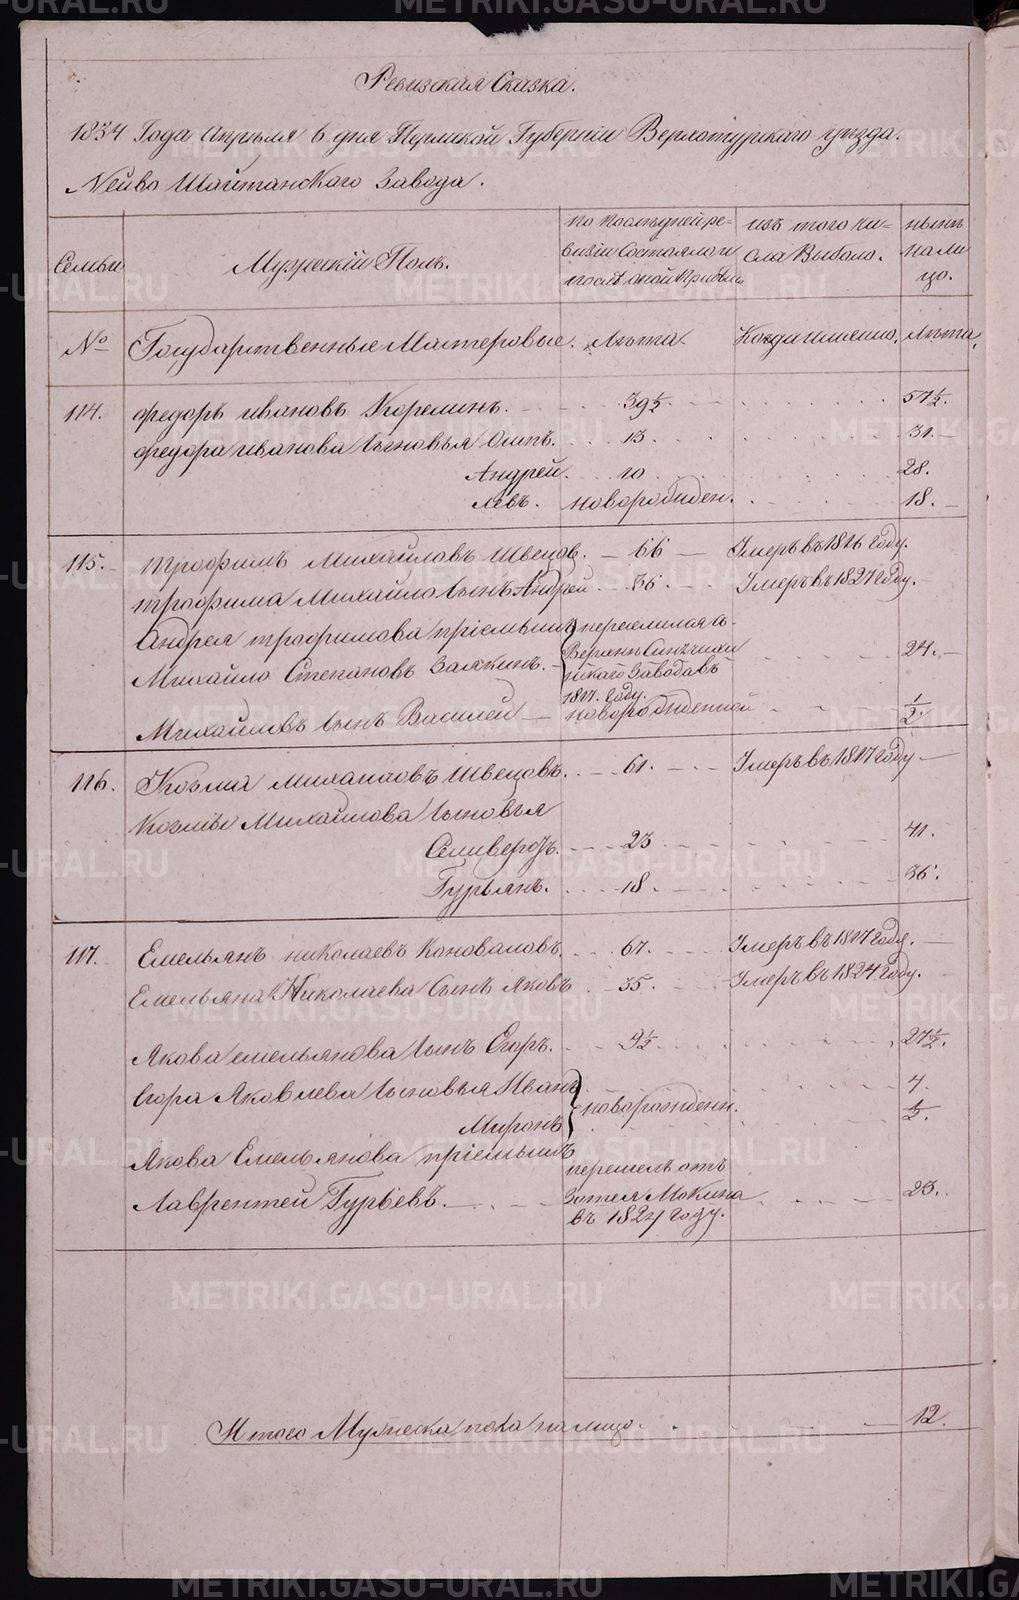 Ревизская Сказка.
1834 Года Апрѣля 6 дня Пермской Губерніи Верхотурскаго уѣзда.
Нейво Шайтанскаго Завода.
Семьи
Мужескій Полъ.
по послѣдней ре-
визіи Состояло и
послѣ оной прибыло
изъ того чи-
сла Выбыло.
нынѣ
на ли
цо.
№
Государственные Мастеровые.
Лѣта
Когда именно.
Лѣта.
114.
Федоръ Ивановъ
39½
57½.
Федора Иванова Сыновья Осипъ.
13
31.
Андрей.
10
28.
Левъ.
новорожден.
18.
115.
Трофимъ Михайловъ Швецов.
66
Умеръ въ 1816 Году.
Трофима Михайло Сынъ Андрей
36
Умеръ въ 1827 Году.
Андрея Трофимова пріемышъ
Михайло Степановъ Залкинъ.
переселился
Верхне Синячихи
нскаго Заводавъ
1817. Году.
24.
Михайловъ Сынъ Василей
новорожденной
½
116.
Козма Михайловъ Швецовъ.
61.
Умеръ въ 1817 Году
Козмы Михайлова Сыновья
Селиверстъ.
23
41.
Гурьянъ.
18.
36.
117.
Емельянъ Николаевъ Коноваловъ.
67.
Умеръ въ 1817 Году.
Емельяна Николаева Сынъ Яковъ
35.
Умеръ въ 1824 Году.
Якова Емельянова Сынъ Егоръ.
9½
27½.
Егора Яковлева Сыновья Иванъ
4.
Миронъ
новорожден.
½.
Якова Емельянова пріемышъ
Лаврентей Гурьевъ.
перешелъ отъ
Зятея Мокина
въ 1824 Году.
23.
Итого Мужеска пола на лицо.
12.
METRIKI.GASO-URAL.RU